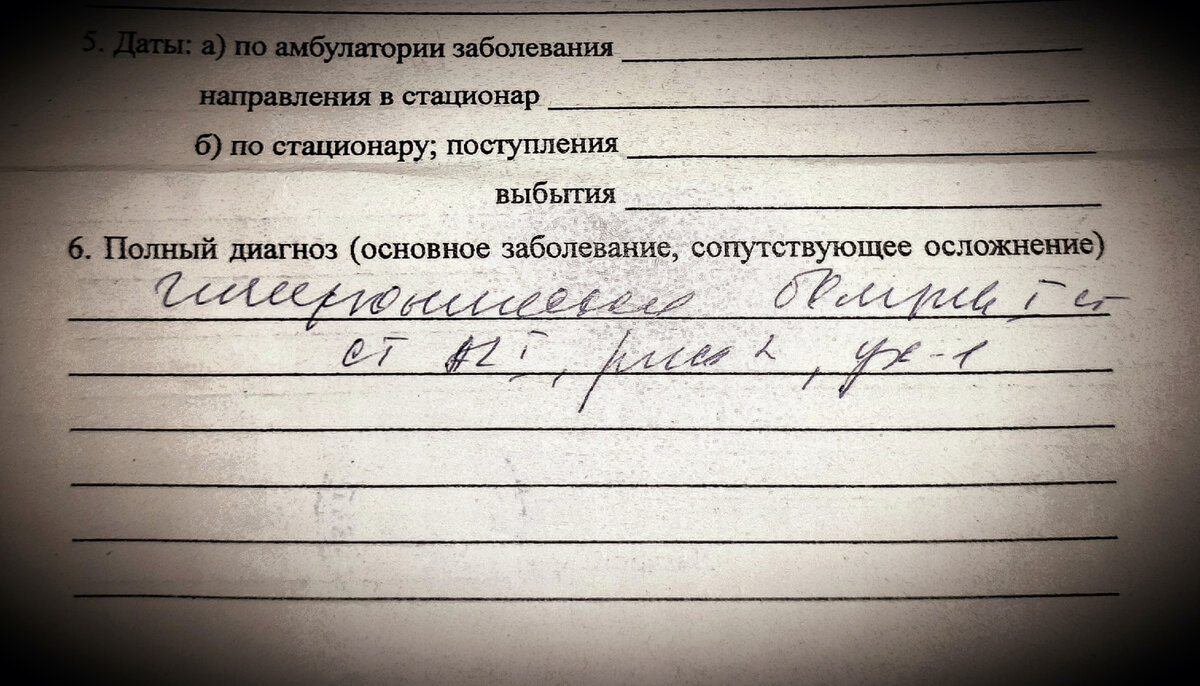 5. Даты: а) по амбулатории заболевания
направления в стационар
б) по стационару; поступления
выбытия
6. Полный диагноз (основное заболевание, сопутствующее осложнение)
Гипертоническая болезнь I ст
ст АГ I, риск 2, ух-1